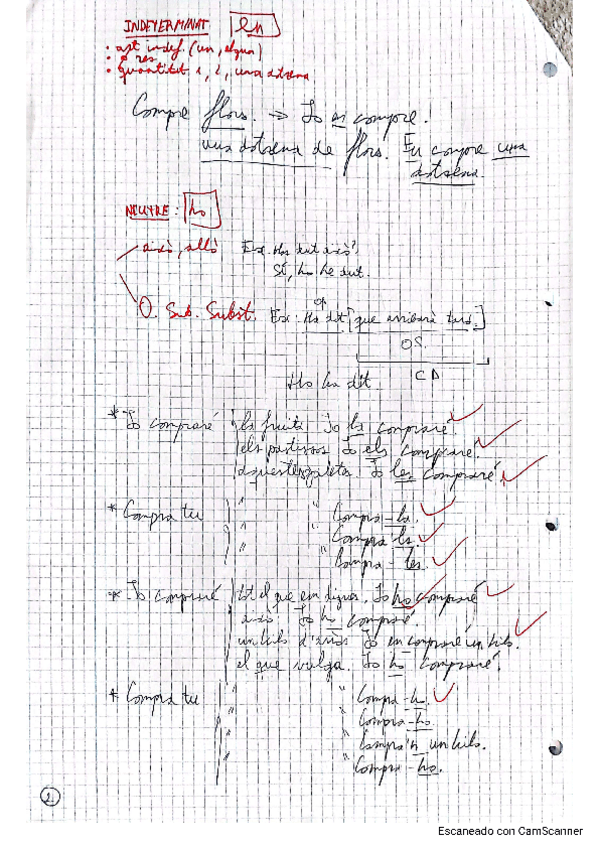 INDETERMINAT en
• art indef. (un, algun)
• ø res
• quantitat 1, 2, una dotzena
Compre flors. => Jo en compre.
una dotzena de flors. En compre una
dotzena.
NEUTRE: ho
això, allò Ex: Has dut això?
Sí, ho he dut.
O. Sub. Subst. Ex: Ha dit [que arribarà tard.]
O.S.
CD
Ho ha dit
* Jo compraré la fruita Jo la compraré.
els pastissos Jo els compraré.
aquestes galetes. Jo les compraré.
* Compra tu " " Compra-la.
" Compra'ls.
" " Compra-les.
* Jo compraré tot el que em digues. Jo ho compraré
això. Jo ho compraré
un kilo d'arròs Jo en compraré un kilo.
el que vulga. Jo ho compraré.
* Compra tu " " Compra-ho.
" " Compra-ho.
" " Compra'n un kilo.
" " Compra-ho.
2
Escaneado con CamScanner